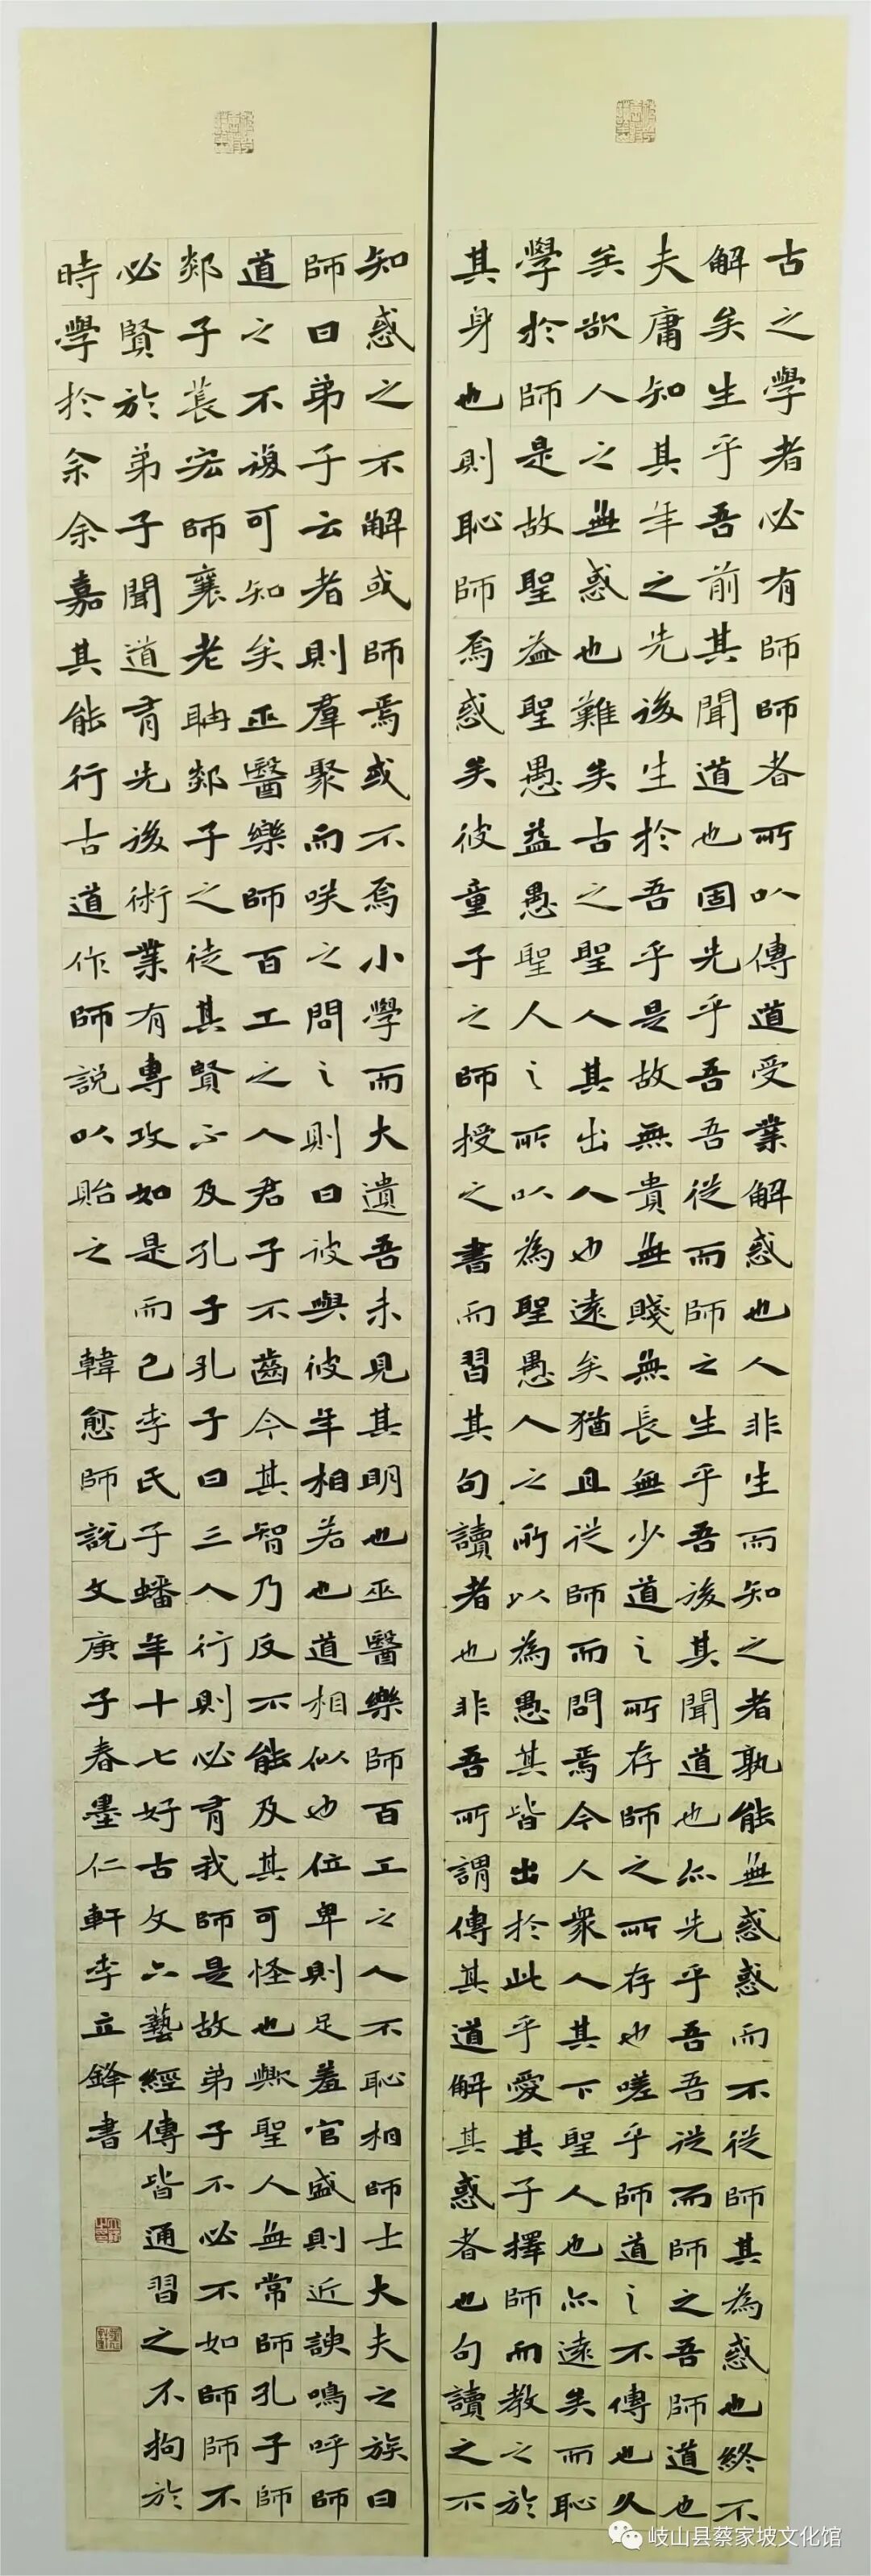 古之學者必有師師者所以傳道受業解惑也人非生而知之者孰能無惑惑而不從師其為惑也終不
解矣生乎吾前其聞道也固先乎吾吾從而師之生乎吾後其聞道也亦先乎吾吾從而師之吾師道也
夫庸知其年之先後生於吾乎是故無貴無賤無長無少道之所存師之所存也嗟乎師道之不傳也久
矣欲人之無惑也難矣古之聖人其出人也遠矣猶且從師而問焉今人衆人其下聖人也亦遠矣而恥
學於師是故聖益聖愚益愚聖人之所以為聖愚人之所以為愚其皆出於此乎愛其子擇師而教之於
其身也則恥師焉惑矣彼童子之師授之書而習其句讀者也非吾所謂傳其道解其惑者也句讀之不
知惑之不解或師焉或不焉小學而大遺吾未見其明也巫醫樂師百工之人不恥相師士大夫之族曰
師曰弟子云者則羣聚而咲之問之則曰彼與彼年相若也道相似也位卑則足羞官盛則近諛嗚呼師
道之不復可知矣巫醫樂師百工之人君子不齒今其智乃反不能及其可怪也歟聖人無常師孔子師
郯子萇宏師襄老聃郯子之徒其賢不及孔子孔子曰三人行則必有我師是故弟子不必不如師師不
必賢於弟子聞道有先後術業有專攻如是而已李氏子蟠年十七好古文六藝經傳皆通習之不拘於
時學於余余嘉其能行古道作師說以貽之 韓愈師說文庚子春墨仁軒李立鋒書
岐山县蔡家坡文化馆